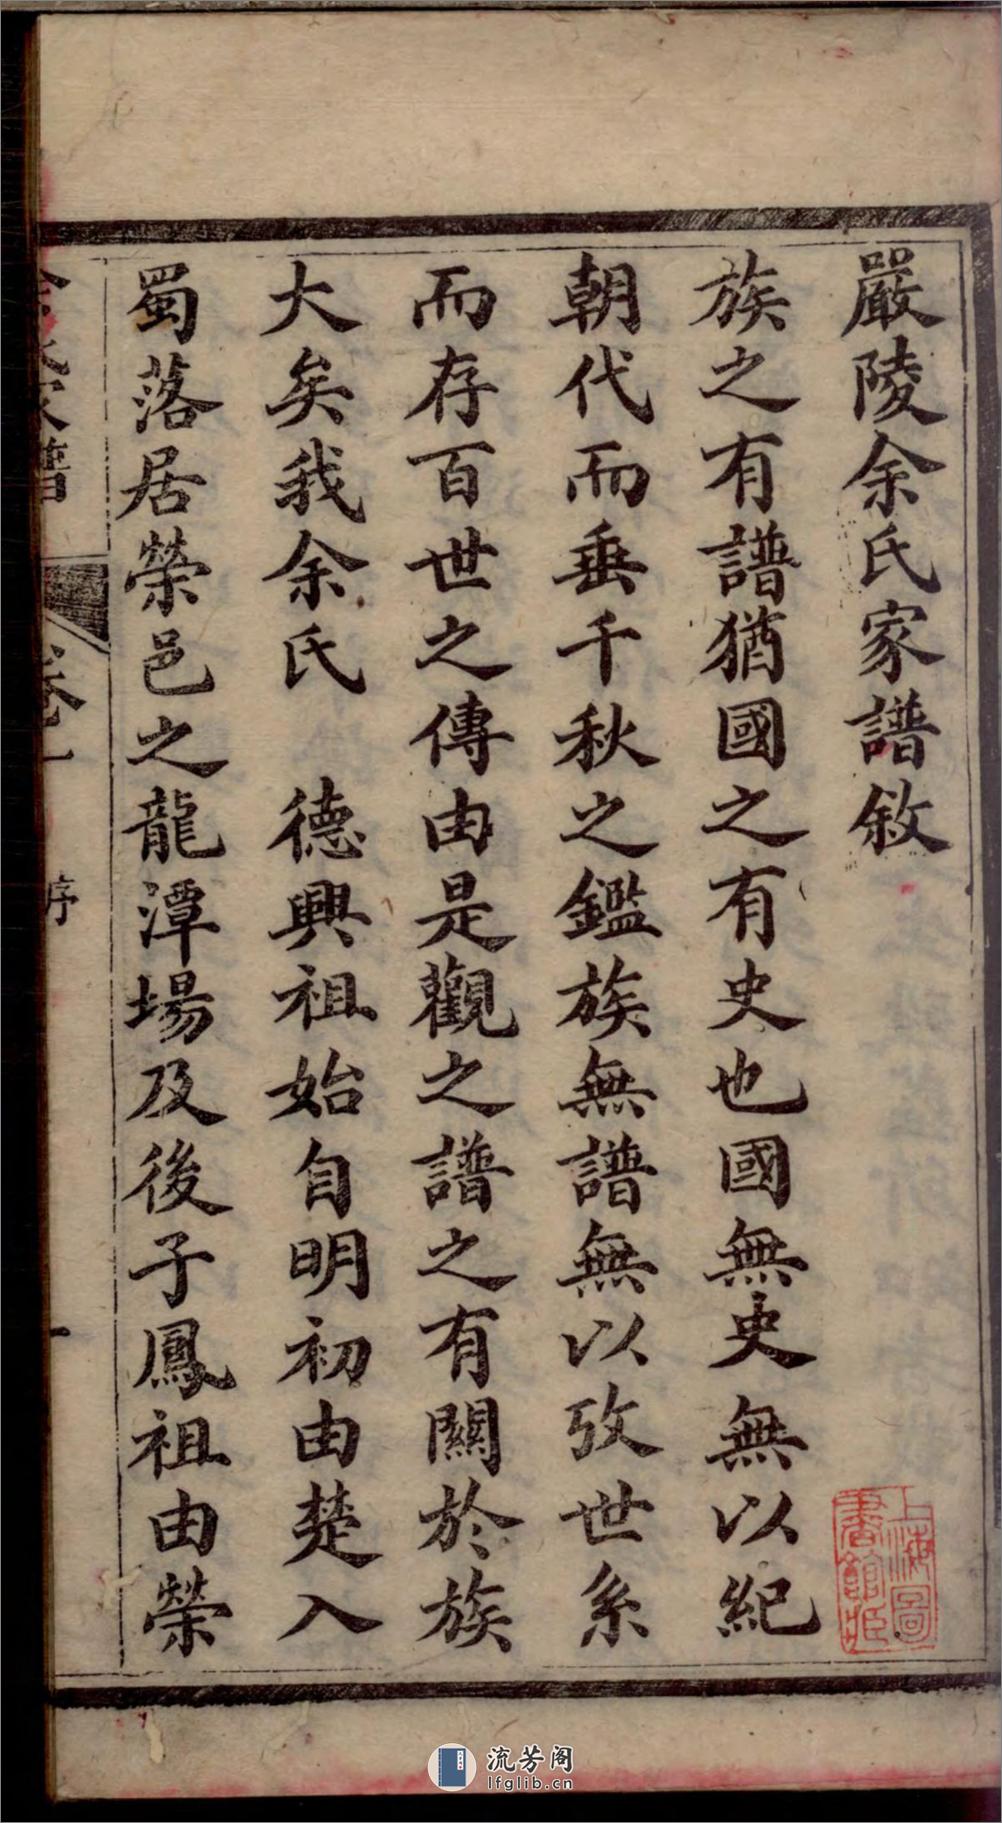 嚴陵余氏家譜敘
族之有譜猶國之有史也國無史無以紀
朝代而垂千秋之鑑族無譜無以攷世系
而存百世之傳由是觀之譜之有關於族
大矣我余氏　德興祖始自明初由楚入
蜀落居榮邑之龍潭場及後子鳳祖由榮
余氏家譜
卷一
序
一
上海圖
書館藏
流芳阁
lfglib.cn